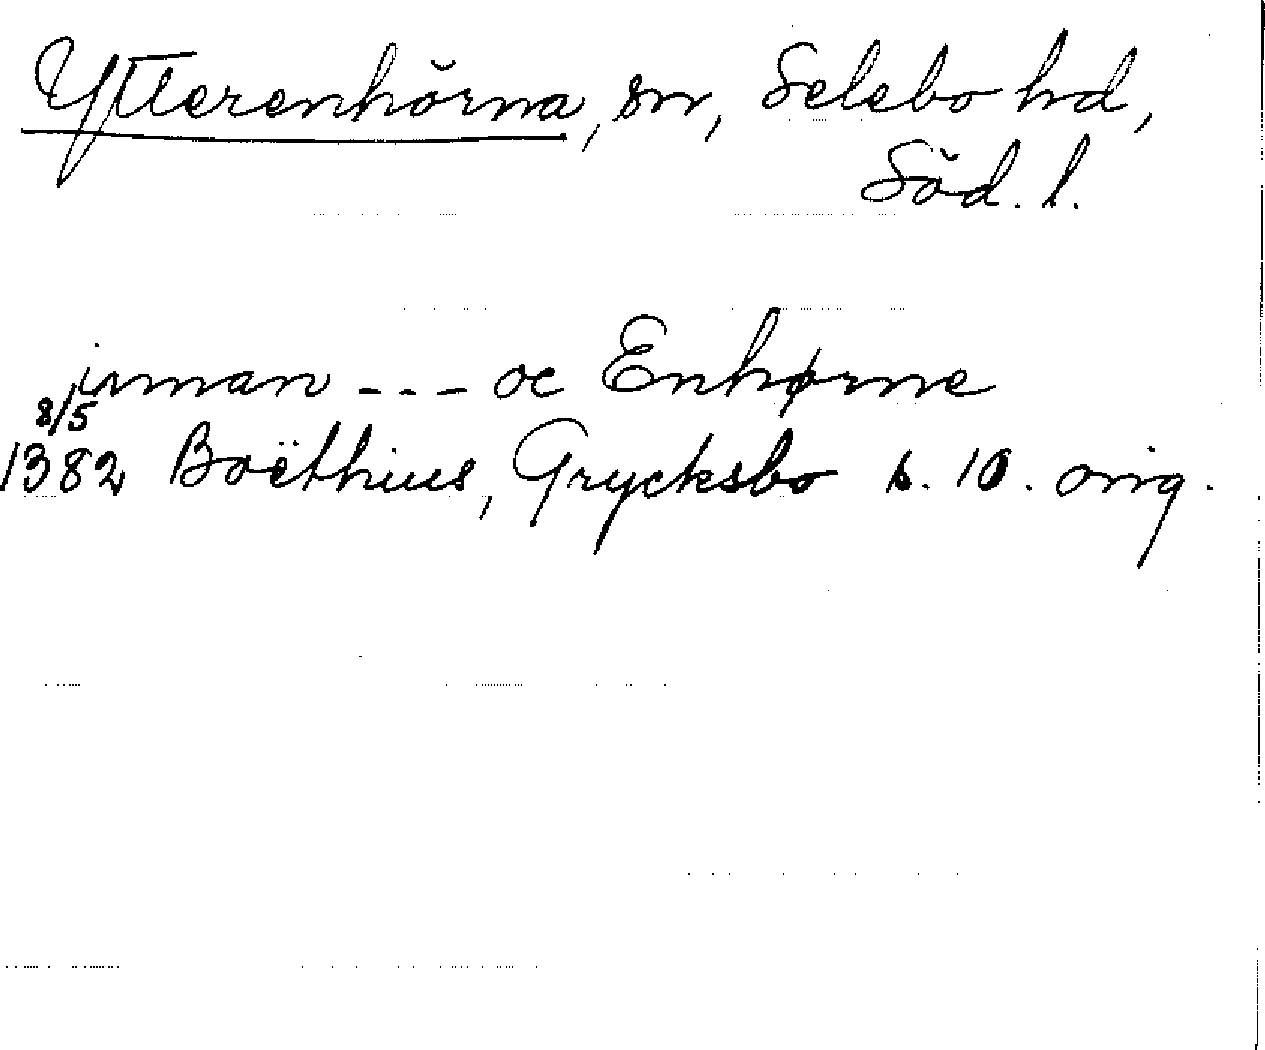 Ytterenhörna, sn, Selebo hd,
Söd. l.
innan --- oc Enhørne
8/5
1382 Boëthius, Grycksbo s. 10. orig.